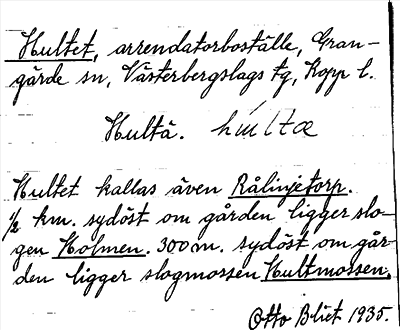 Hultet, arrendatorboställe, Gran-
gärde sn, Västerbergslags tg, Kopp l.
Hultä. hultæ
Hultet kallas även Rålinjetorp.
1/2 km. sydöst om gården ligger slo-
gen Holmen. 300 m. sydöst om går-
den ligger slogmossen Hultmossen.
Otto Blixt 1935.